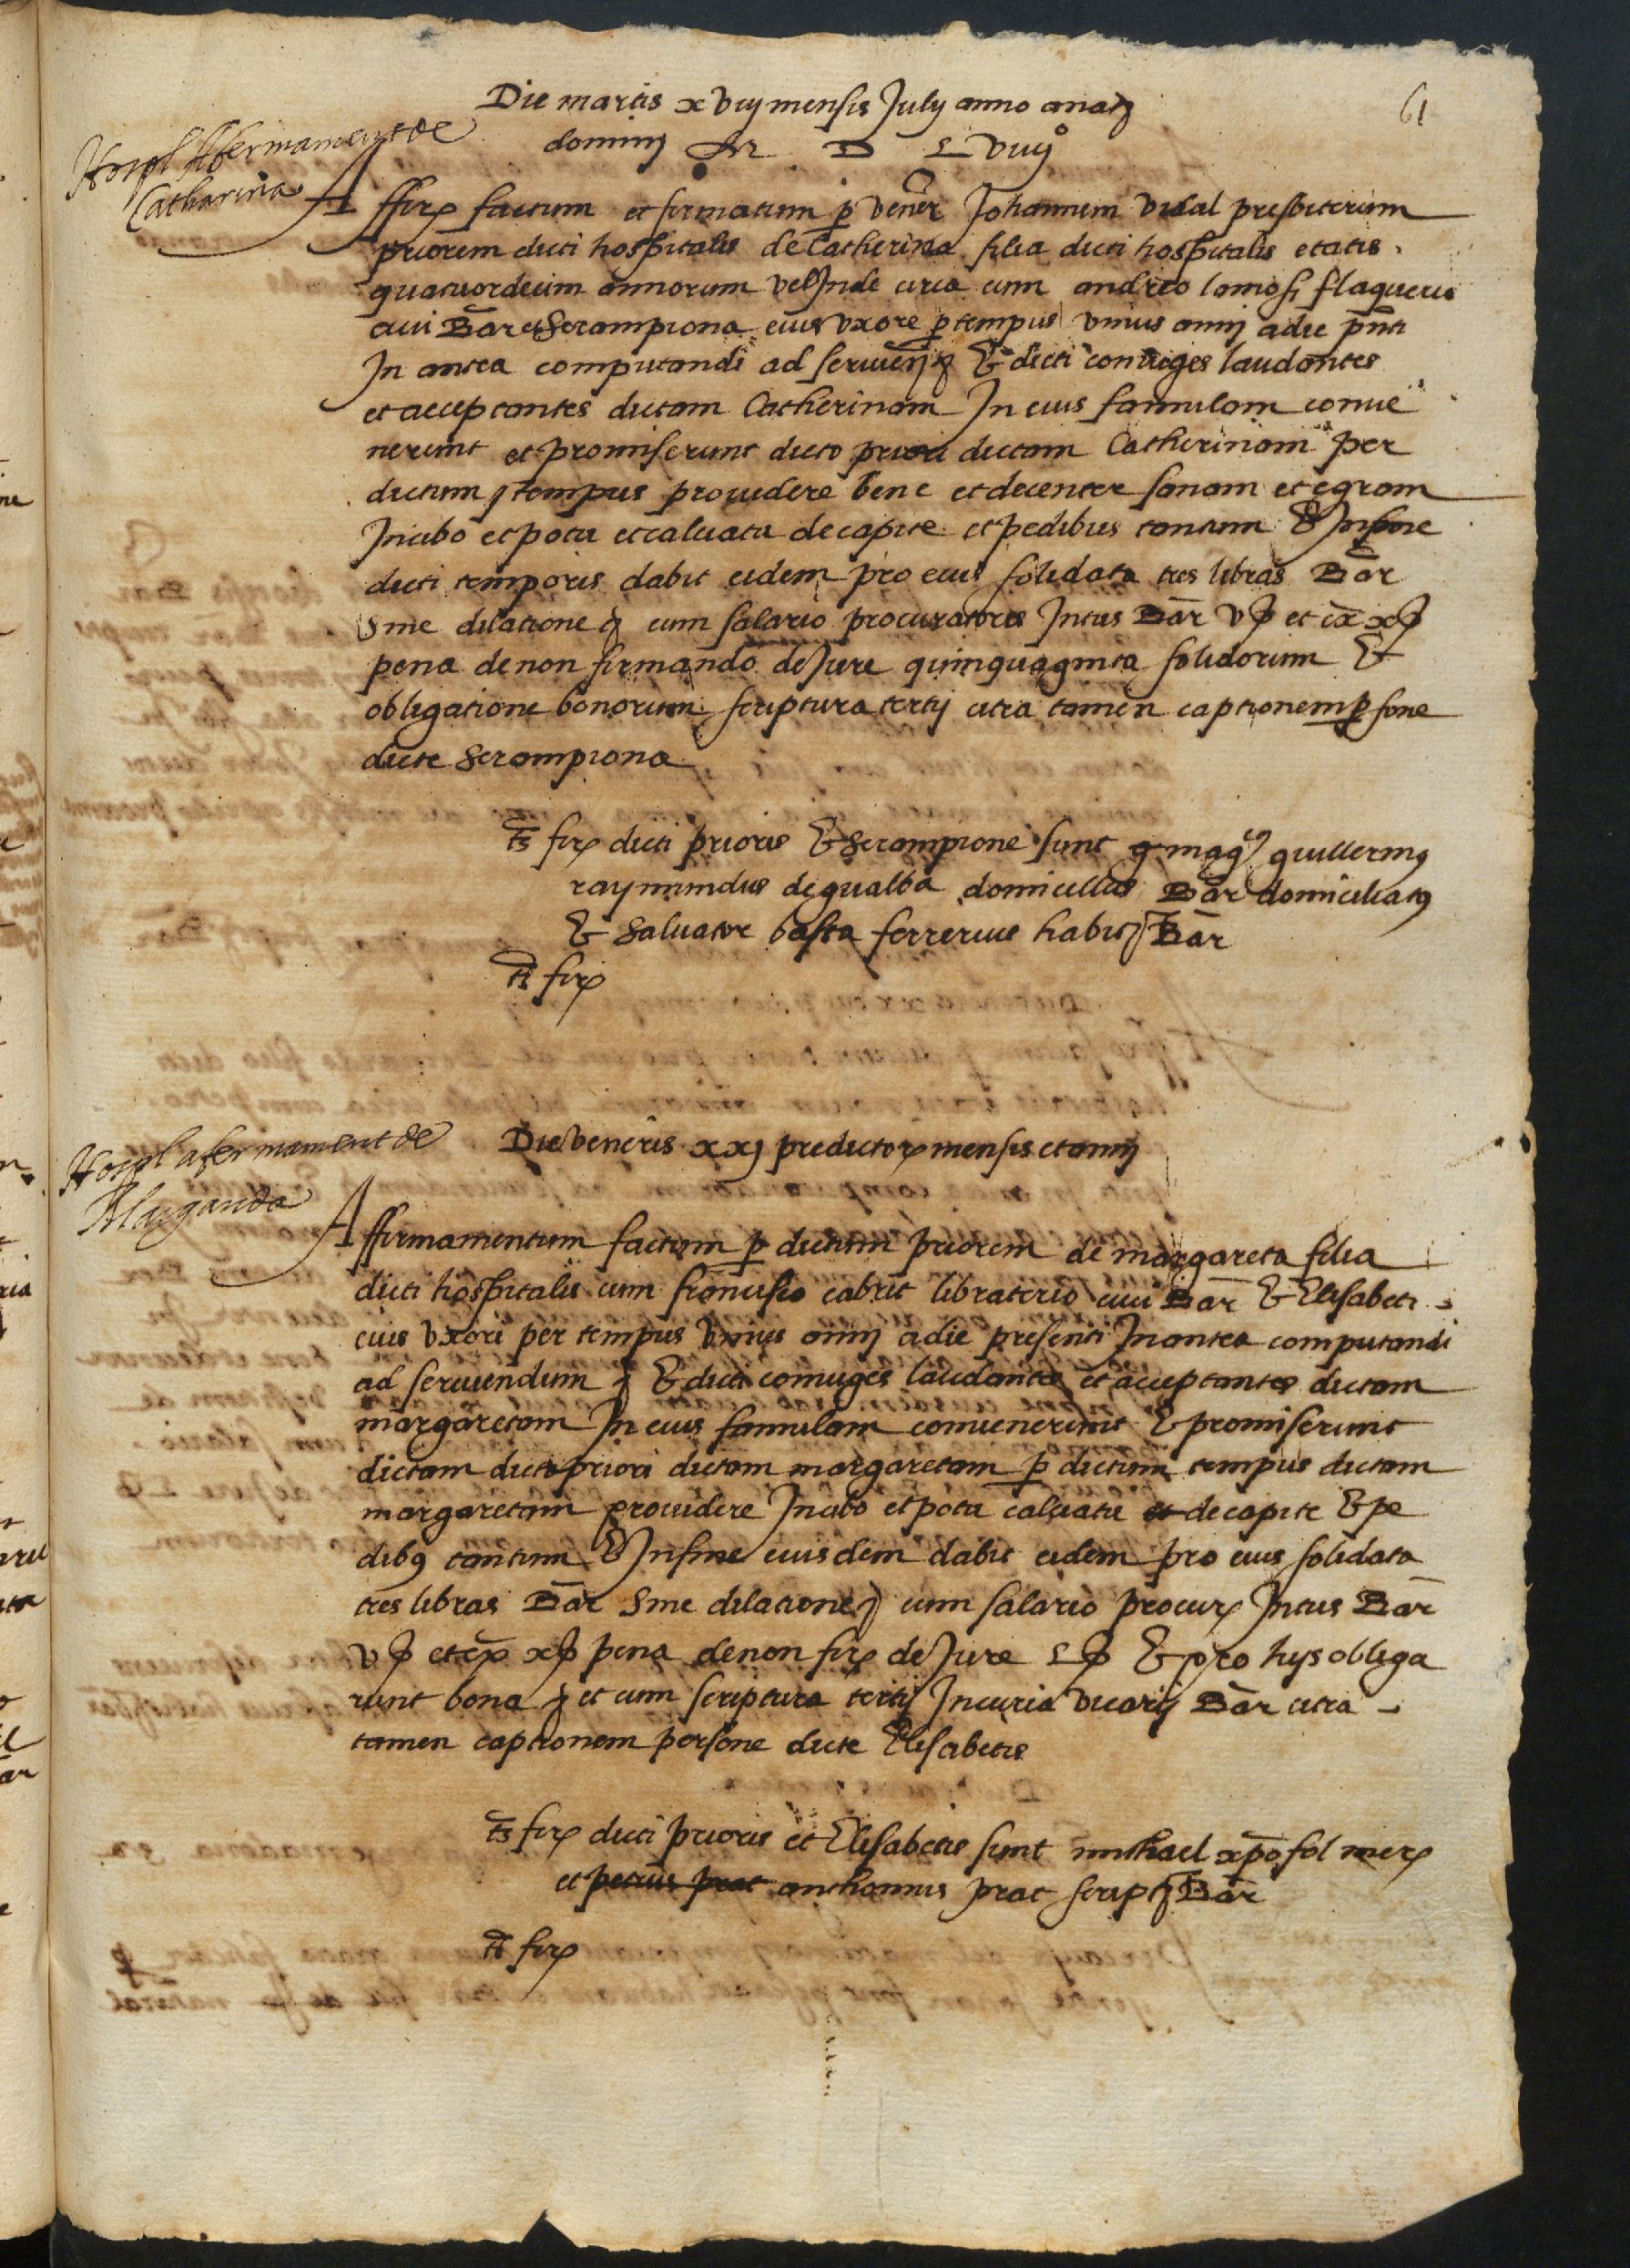 61
Die martis xviiij mensis Julij anno a natte
dominj M D L viiijº
Hospl Afermament de
Catharina
Affirm factum et firmatum p vener Johannem vidal presbiterum
priorem dicti hospitalis de Catherina filia dicti hospitalis etatis
quatuordecim annorum vel Inde circa cum andreo lamosi flaquerio
civi Bar et Serampiona eius uxore p tempus unius annj a die pnti
In antea computandi ad serviend etc Et dicti coniuges laudantes
et acceptantes dictam Catherinam In eius famulam conve
nerunt et promiserunt dicto priori dictam Catherinam per
dictum tempus providere bene et decenter sanam et egram
In cibo et potu et calciatu de capite et pedibus tantum Et In fine
dicti temporis dabit eidem pro eius solidata tres libras Bar
Sine dilatione etc cum salario procuratoris Intus Bar v ß et ex x ß
pena de non firmando de Jure quinquaginta solidorum Et
obligatione bonorum scriptura tertij citra tamen captionem psone
dicte Serampiona
ts firm dicti prioris Et Serampione sunt magcus guillermus
raymundus de gualba domicellus Bar domiciliatus
Et Salvator basta ferrerius habit Bar
ts firm
Die veneris xxj predictor mensis et annj
Hospl afermament de
Margarida
Affirmamentum factum p dictum priorem de margareta filia
dicti hospitalis cum fioncisio cabrit libraterio civi Bar Et Elisabeti
eius uxori per tempus unius annj a die presenti In antea computandi
ad serviendum etc Et dicti coniuges laudantes et acceptantes dictam
margaretam In eius famulam convenerunt Et promiserunt
dictam dicto priori dictam margaretam p dictum tempus dictam
margaretam providere In cibo et potu calciatu et de capite Et pe
dibus tantum Et In fine eiusdem dabit eidem pro eius solidata
tres libras Bar Sine dilatione etc cum salario procur Intus Bar
v ß et ex x ß pena de non firm de Jure L ß Et pro hijs obliga
runt bona etc et cum scriptura tertij In curia vicarij Bar citra
tamen captionem persone dicte Elisabetis
ts firm dicti prioris et Elisabetis sunt michael xpofol merc
et petrus prat anthonius prat script Bar
ts firm